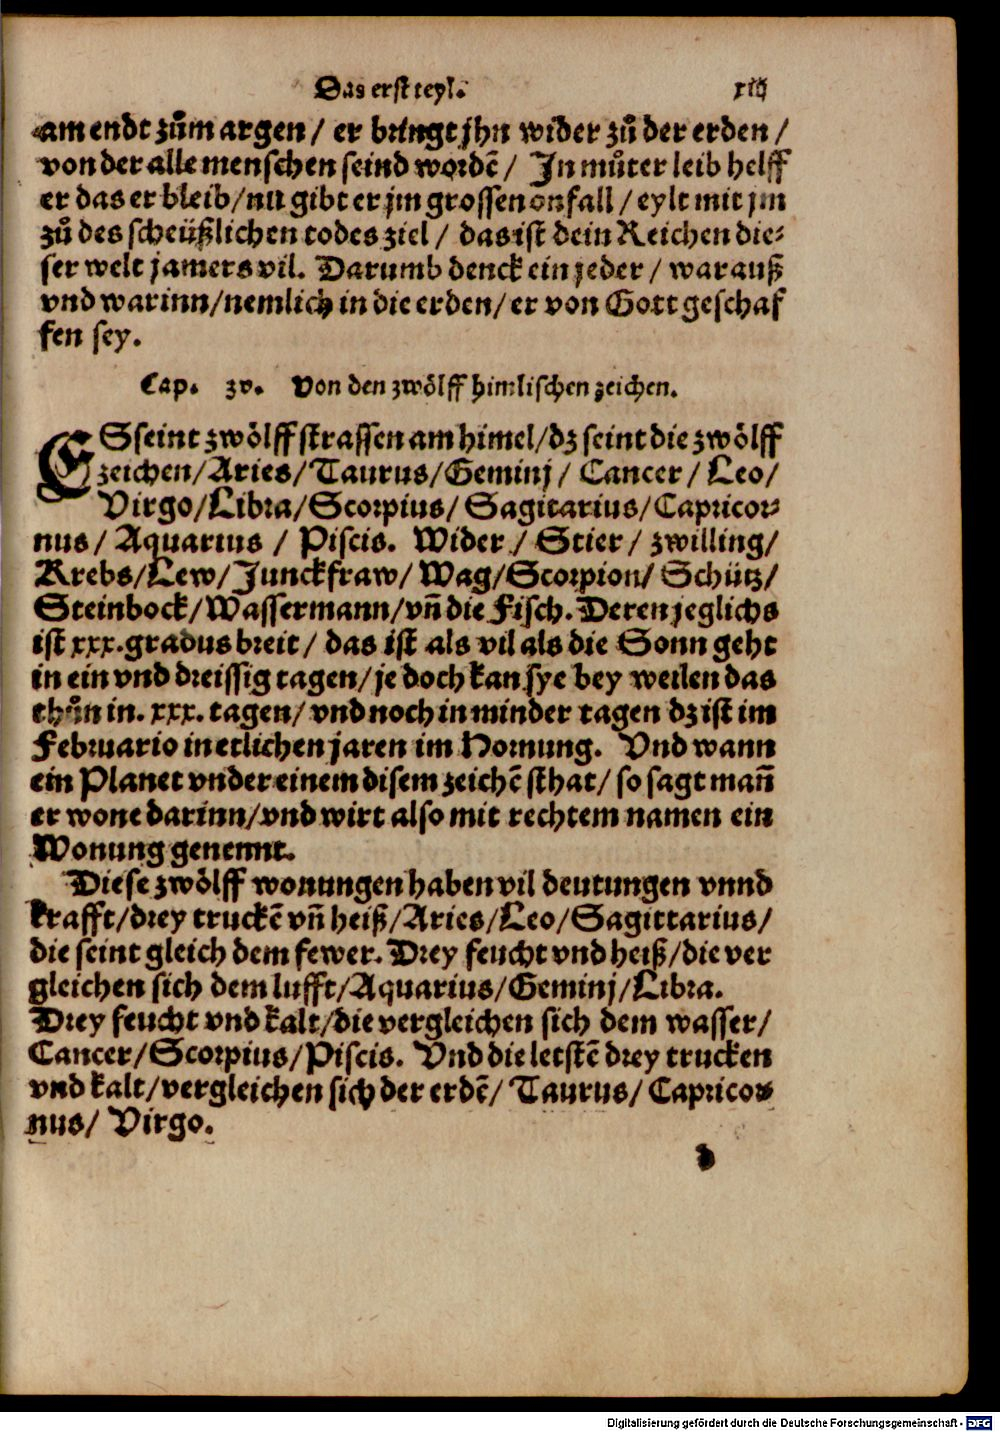 Das erst teyl. xiij
am endt zům argen / er bringt jhn wider zů der erden /
von der alle menschen seind wordē / In můter leib helff
er das er bleib / nu gibt er jm grossen onfall / eylt mit jm
zů des scheüßlichen todes ziel / das ist dein Reichen die⸗
ser welt jamers vil. Darumb denck ein jeder / warauß
vnd warinn / nemlich in die erden / er von Gott geschaf
fen sey.
Cap. xv. Von den zwölff himlischen zeichen.
ES seint zwölff strassen am himel / dz seint die zwölff
zeichen / Aries / Taurus / Geminj / Cancer / Leo /
Virgo / Libra / Scorpius / Sagitarius / Capricor⸗
nus / Aquarius / Piscis. Wider / Stier / zwilling /
Krebs / Lew / Junckfraw / Wag / Scorpion / Schütz /
Steinbock / Wassermann / vñ die Fisch. Deren jeglichs
ist xxx. gradus breit / das ist als vil als die Sonn geht
in ein vnd dreissig tagen / je doch kan sye bey weilen das
thůn in. xxx. tagen / vnd noch in minder tagen dz ist im
Februario in etlichen jaren im Hornung. Vnd wann
ein Planet vnder einem disem zeichē sthat / so sagt mañ
er wone darinn / vnd wirt also mit rechtem namen ein
Wonung genennt.
Diese zwölff wonungen haben vil deutungen vnnd
krafft / drey truckē vñ heiß / Aries / Leo / Sagittarius /
die seint gleich dem fewer. Drey feucht vnd heiß / die ver
gleichen sich dem lufft / Aquarius / Geminj / Libra.
Drey feucht vnd kalt / die vergleichen sich dem wasser /
Cancer / Scorpius / Piscis. Vnd die letstē drey trucken
vnd kalt / vergleichen sich der erdē / Taurus / Capricor⸗
nus / Virgo.
d
Digitalisierung gefördert durch die Deutsche Forschungsgemeinschaft - DFG